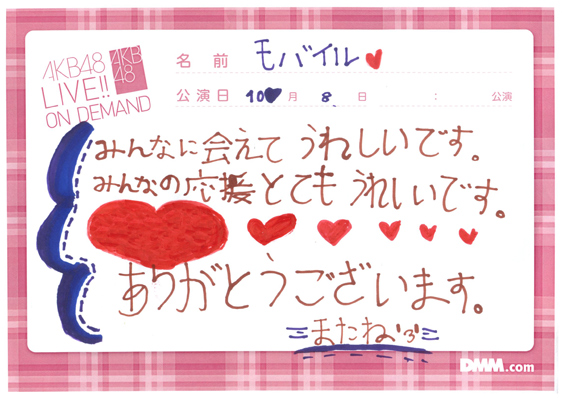 AKB48
LIVE!!
ON DEMAND
AKB
48
名前 モバイル
公演日 10月 8日 : 公演
みんなに会えてうれしいです。
みんなの応援とてもうれしいです。
ありがとうございます。
またね'3'
DMM.com